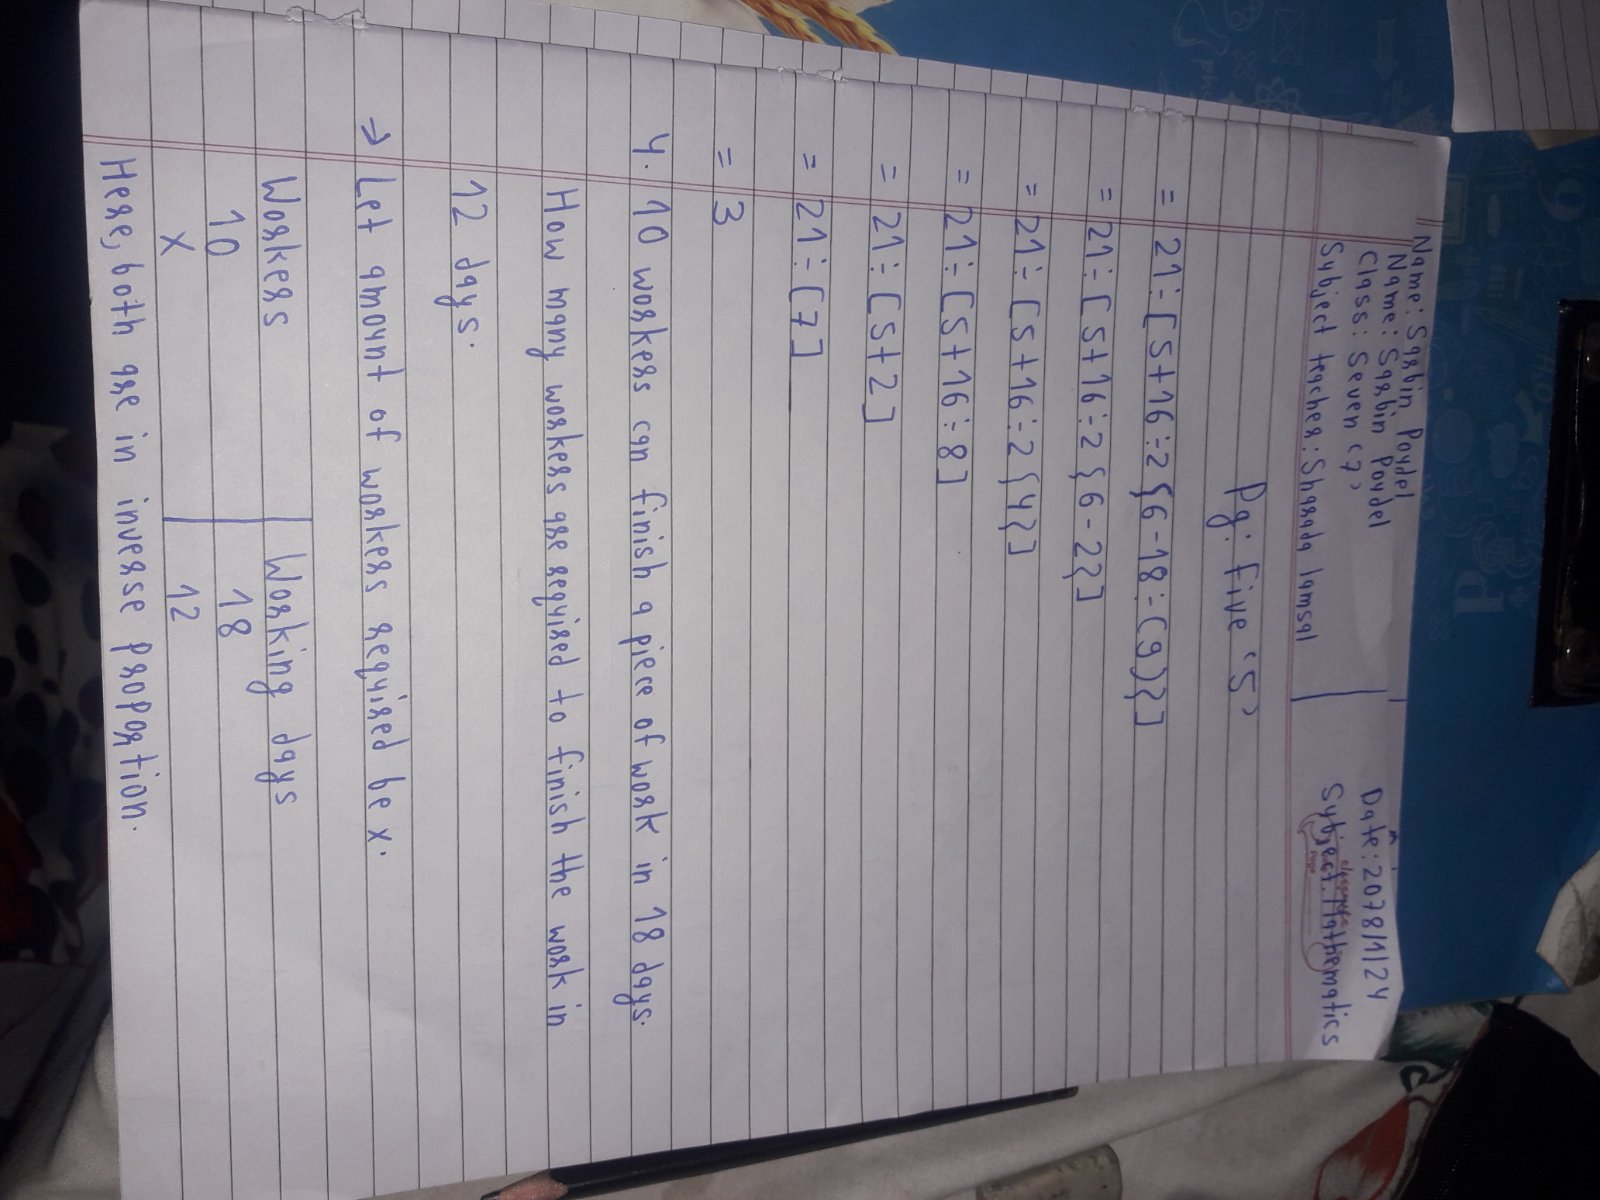 Name: Sarbin Poudel
Name: Sarbin Poudel
Class: Seven <7>
Subject teacher: Sharada lamsal
Date: 2078/1/24
Subject: Mathematics
classmate
Page
Pg: five <5>
= 21÷[5+16÷2{6-18÷(9)}]
= 21÷[5+16÷2{6-2}]
= 21÷[5+16÷2{4}]
= 21÷[5+16÷8]
= 21÷[5+2]
= 21÷[7]
= 3
4. 10 workers can finish a piece of work in 18 days.
How many workers are required to finish the work in
12 days.
→ Let amount of workers required be x.
Workers Working days
10 18
x 12
Here, both are in inverse proportion.